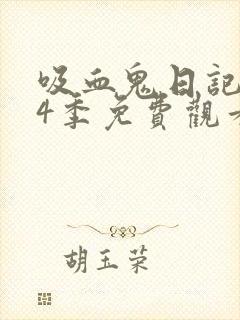 吸血鬼日記
4季免費觀
胡玉荣